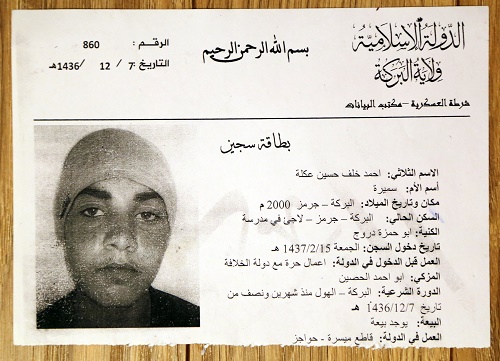 الدولة الإسلامية
ولاية البركة
شرطة العسكرية –مكتب البيانات
بسم الله الرحمن الرحيم
الرقـم : 860
التاريخ :7/ 12 /1436هـ
بطاقة سجين
الاسم الثلاثي: احمد خلف حسين عكلة
أسم الأم: سميرة
مكان وتاريخ الميلاد: البركة – جرمز 2000 م
السكن الحالي: البركة – جرمز – لاجئ في مدرسة
الكنية: ابو حمزة دروج
تاريخ دخول السجن: الجمعة 1437/2/15 هـ
العمل قبل الدخول في الدولة: اعمال حرة مع دولة الخلافة
المزكي: ابو احمد الحصين
الدورة الشرعية: البركة – الهول منذ شهرين ونصف من
تاريخ 1436/12/7 هـ
البيعة: يوجد بيعة
العمل في الدولة: قاطع ميسرة - حواجز